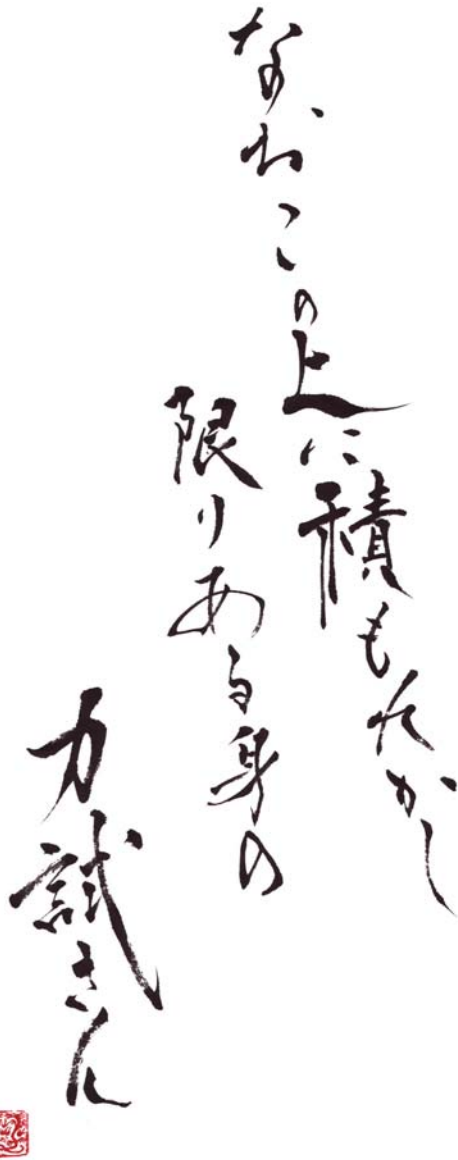 なおこの上に積もれかし
限りある身の
力試さん